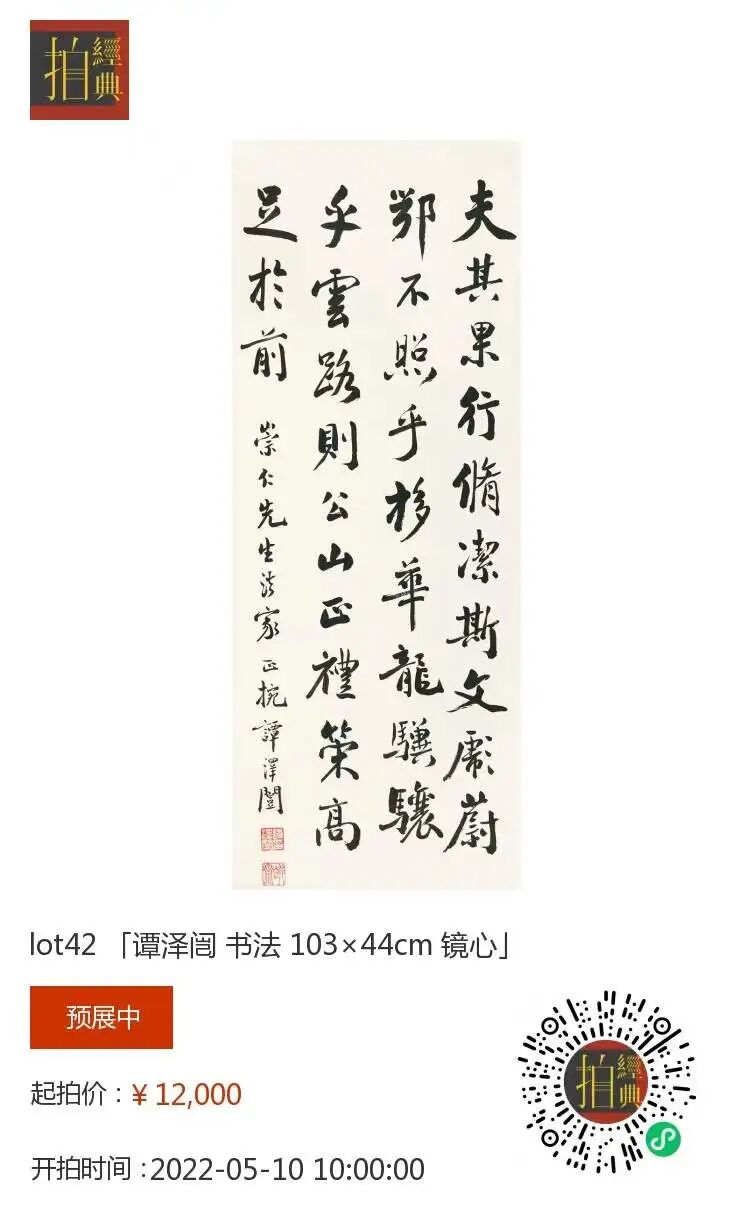 拍 經典
夫其果行脩潔斯文彪蔚
鄂不照乎移華龍驥驤
乎雲路則公山正禮策高
足於前
崇仁先生法家正捥譚澤闓
lot42 「谭泽闿 书法 103×44cm 镜心」
预展中
起拍价：¥ 12,000
开拍时间 :2022-05-10 10:00:00
拍 經典